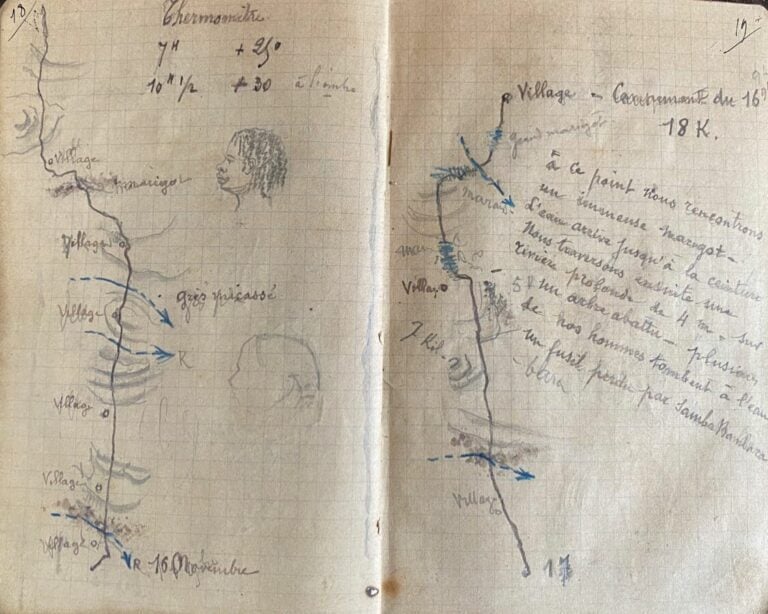 18
Thermomètre
7H + 25°
10H 1/2 + 30 à l'ombre
Village
marigot
Village
grès micassé
Village
R
Village
Village
Village
R 16 Novembre
19
Village - Campement du 16
18 K.
grand marigot
à ce point nous rencontrons
un immense marigot -
l'eau arrive jusqu'à la ceinture
Nous traversons ensuite une
rivière profonde de 4 m - sur
un arbre abattu - plusieurs
de nos hommes tombent à l'eau
un fusil perdu par Samba Bambara
- bara
marais
Village
Village
17